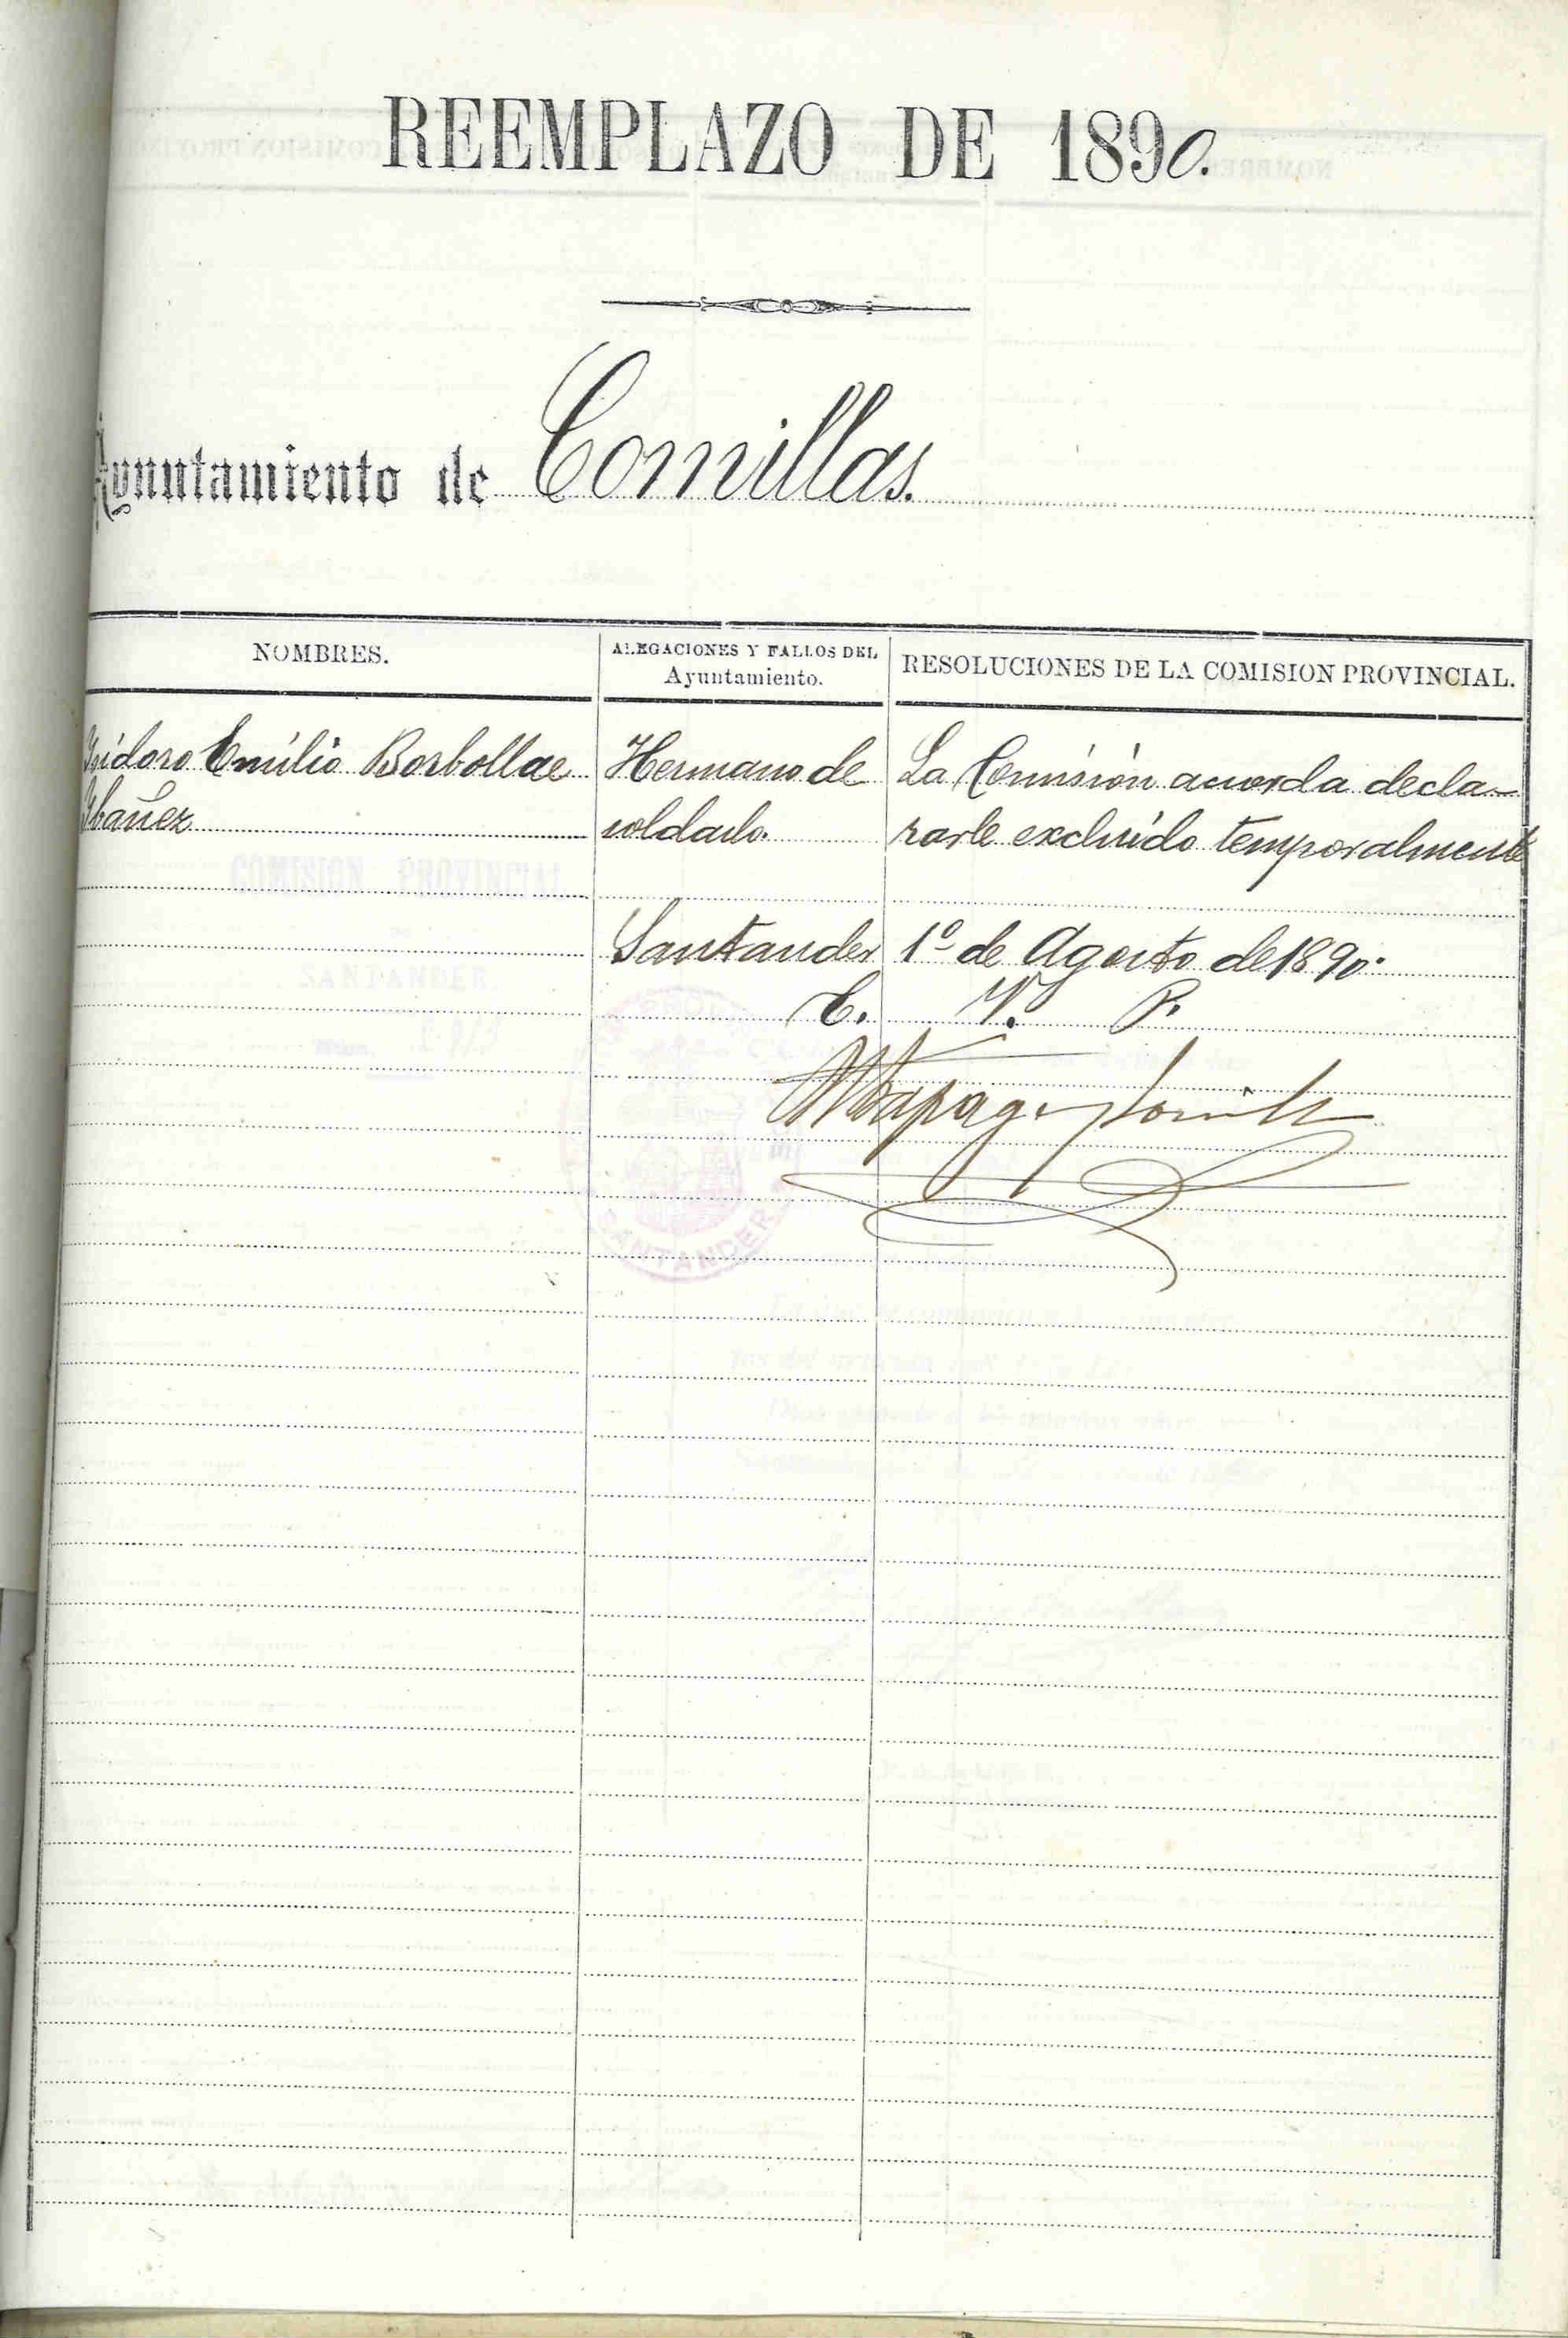 REEMPLAZO DE 1890.
Ayuntamiento de Comillas.
NOMBRES.
ALEGACIONES Y FALLOS DEL
Ayuntamiento.
RESOLUCIONES DE LA COMISION PROVINCIAL.
Isidoro Emilio Borbolla e
Ibañez
Hermano de
soldado.
La Comisión acuerda decla-
rarle excluido temporalmente
Santander 1º de Agosto de 1890.
E. V. P.
COMISION PROVINCIAL
SANTANDER
SANTANDER